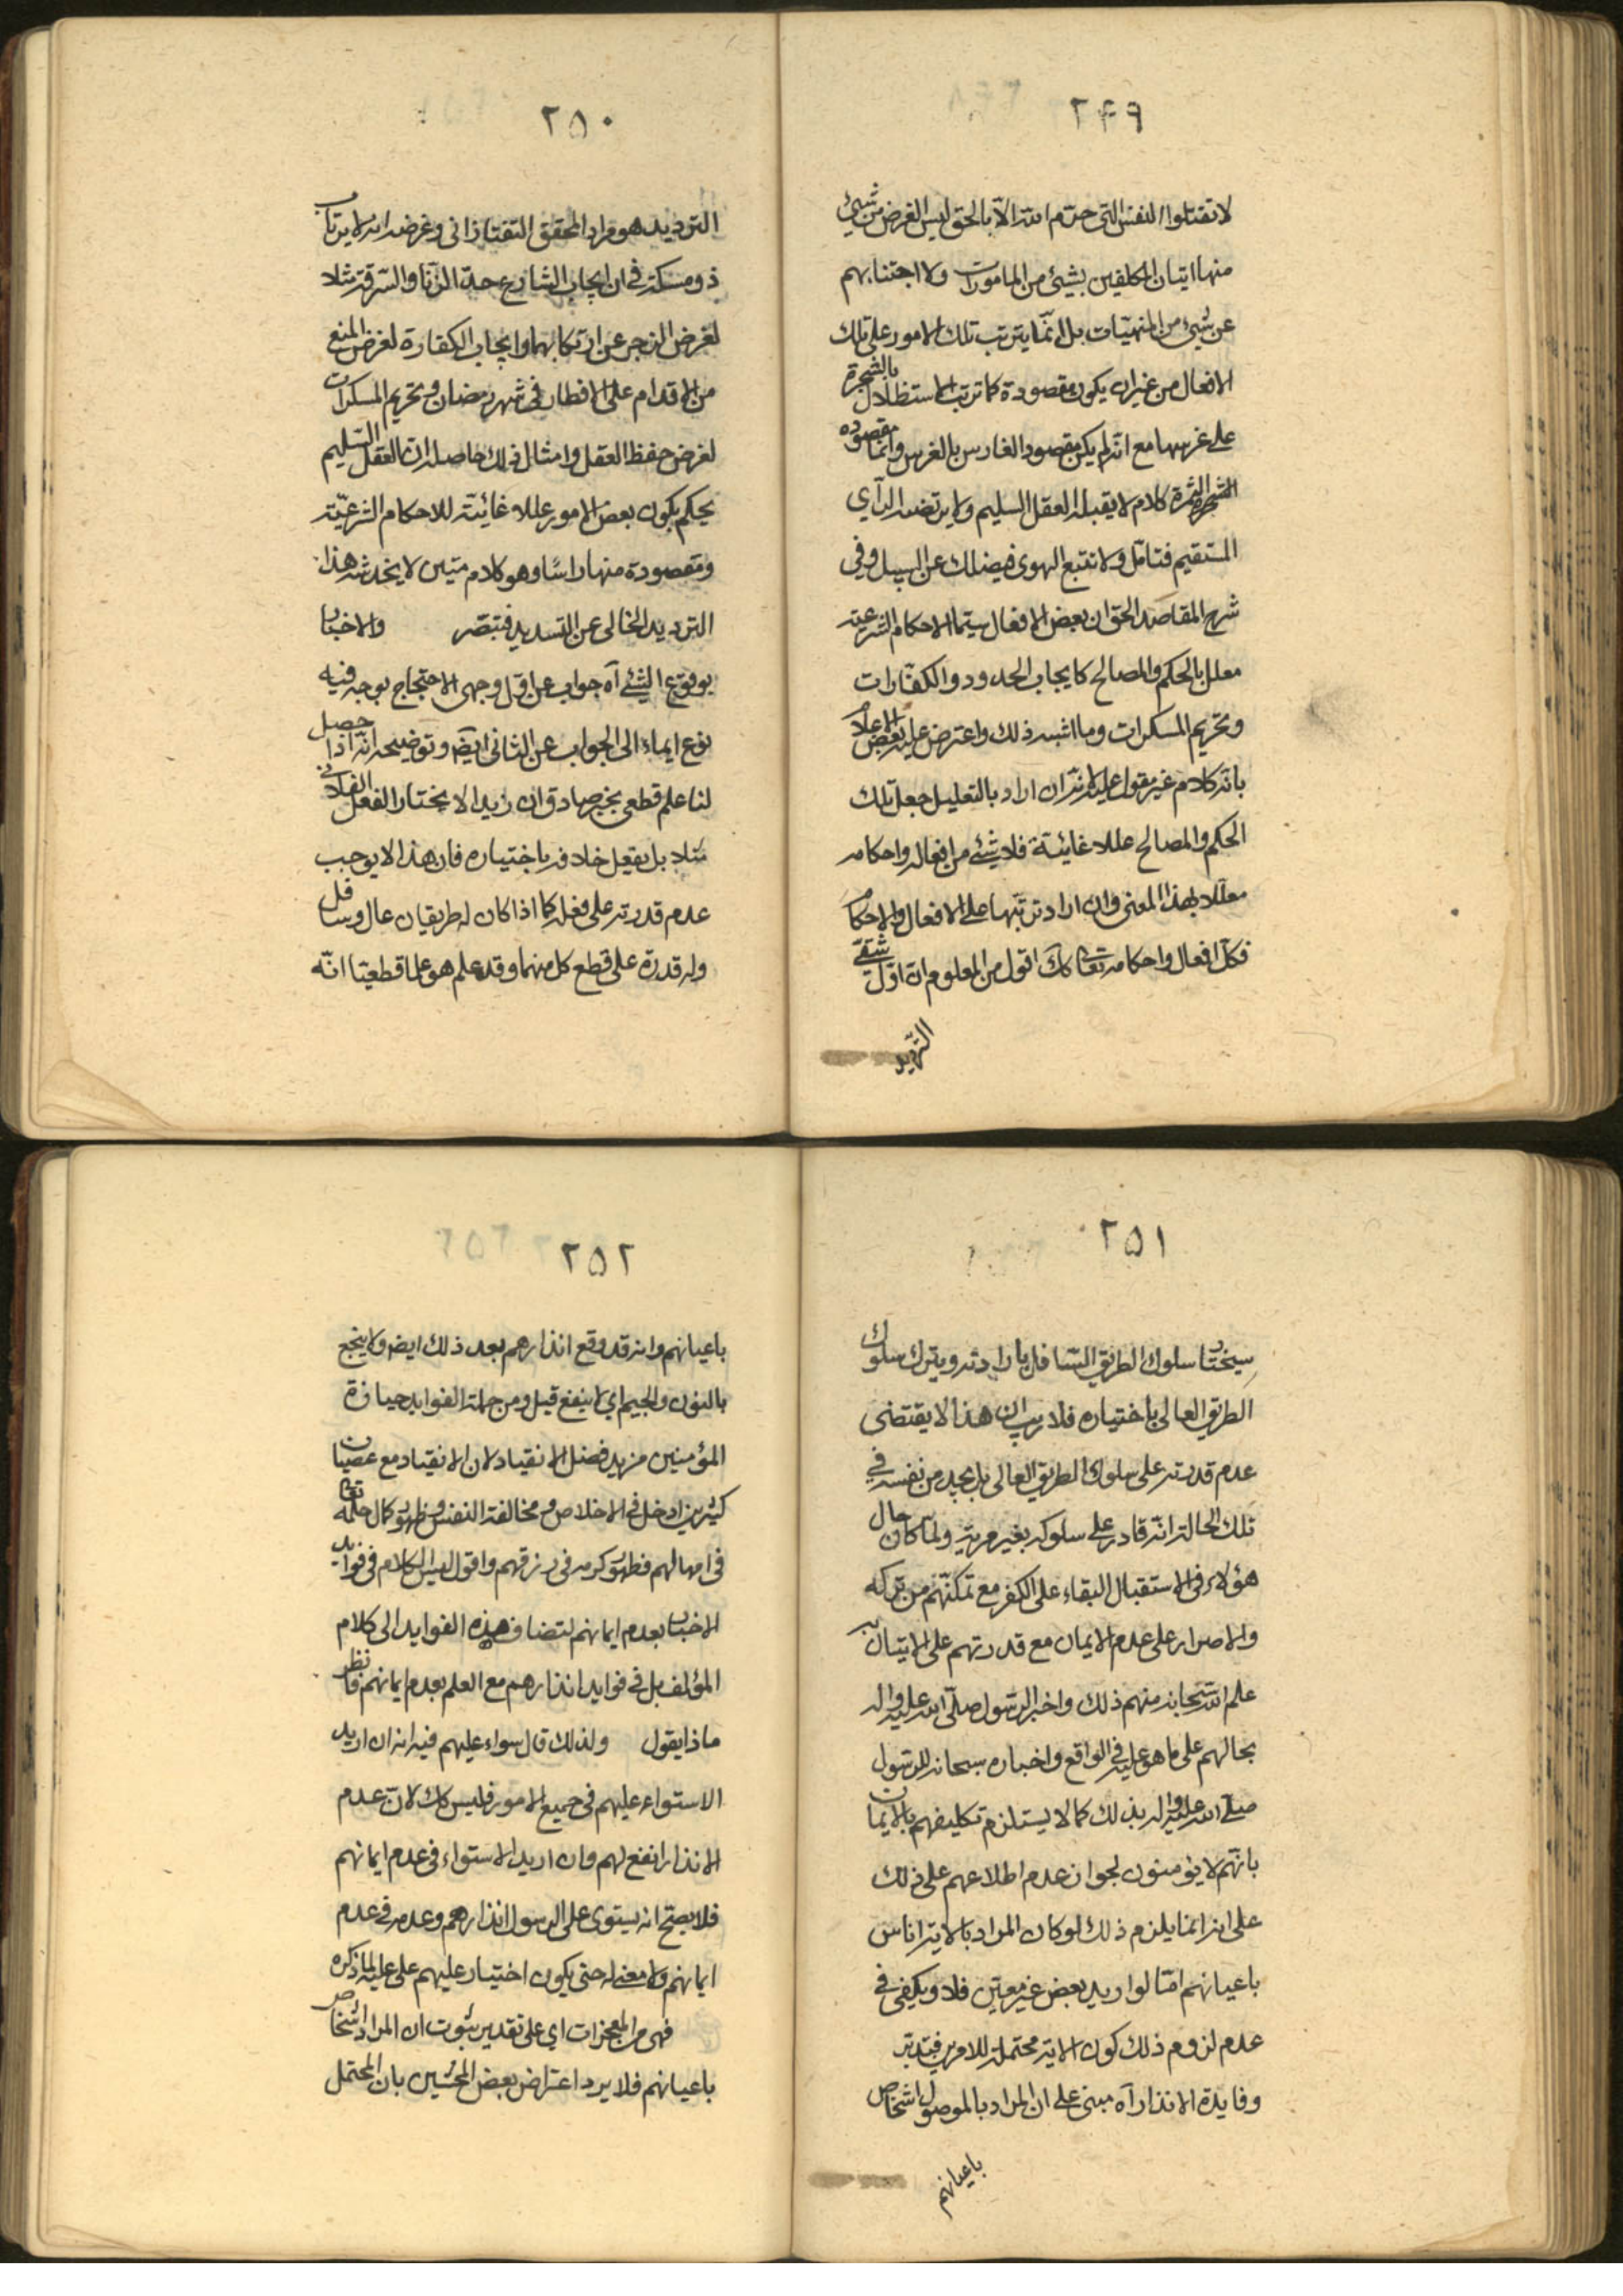 ٢٤٩
لا تقتلوا النفس التى حرّم اللّه الّا بالحق ليس الغرض من شيئ
منها اتيان المكلفين بشيئ من المامورات ولا اجتنابهم
عن شيئ من المنهيّات بل انّما يترتب تلك الامور على تلك
الافعال من غير ان يكون مقصودة كما ترتب الاستظلال بالشجرة
على غرسها مع انّه لم يكن مقصود الغارس بالغرس وانّما مقصوده
الثمرة كلام لا يقبله العقل السليم ولا يرتضيه الرآي
المستقيم فتامّل ولا تتبع الهوى فيضلك عن السبيل وفى
شرح المقاصد الحق ان بعض الافعال سيّما الاحكام الشرعيّة
معلل بالحكم والمصالح كايجاب الحدود والكفّارات
وتحريم المسكرات وما اشبه ذلك واعترض عليه بعض الاعلام
بانّه كلام غير مقول عليه لانّه ان اراد بالتعليل جعل تلك
الحكم والمصالح عللا غائيّة فلا شيئ من افعاله واحكامه
معللا بهذا المعنى وان اراد ترتّبها على الافعال والاحكام
فكلّ افعاله واحكامه تعالى كك اقول من المعلوم ان اوّل شقّي
الترديد
٢٥٠
الترديد هو مراد المحقق التفتازانى وغرضه انه لا يرتاب
ذو مسكة فى ان ايجاب الشارع حدّ الزّنا والسّرقة مثلا
لغرض الزجر عن ارتكابهما وايجاب الكفارة لغرض المنع
من الاقدام على الافطار فى شهر رمضان وتحريم المسكرات
لغرض حفظ العقل وامثال ذلك حاصله ان العقل السّليم
يحكم بكون بعض الامور عللا غائيّة للاحكام الشرعيّة
ومقصودة منها راسًا وهو كلام متين لا يخدشه هذا
الترديد الخالى عن التسديد فتبصّر والاخبار
بوقوع الشئ آه جواب عن اوّل وجهى الاحتجاج بوجه فيه
نوع ايماء الى الجواب عن الثانى ايضً وتوضيحه انّه اذا حصل
لنا علم قطعى بخبر صادق ان زيدا لا يختار الفعل الفلانى
مثلا بل يفعل خلافه باختياره فان هذا لا يوجب
عدم قدرته على فعله كما اذا كان له طريقان عال وسافل
وله قدرة على قطع كل منهما وقد علم هو علما قطعيّا انّه
٢٥١
سيختار سلوك الطريق السّافل بارادته ويترك سلوك
الطريق العالى باختياره فلا ريب ان هذا لا يقتضى
عدم قدرته على سلوك الطريق العالى بل يجد من نفسه فى
تلك الحالة انّه قادر على سلوكه بغير مرية ولمّا كان حال
هؤلاء فى الاستقبال البقاء على الكفر مع تمكنّهم من تركه
والاصرار على عدم الايمان مع قدرتهم على الاتيان به
علم اللّه سبحانه منهم ذلك واخبر الرسول صلّى اللّه عليه واله
بحالهم على ما هو عليه فى الواقع واخباره سبحانه للرسول
صلّى اللّه عليه واله بذلك كما لا يستلزم تكليفهم بالايمان
بانّهم لا يؤمنون لجواز عدم اطلاعهم على ذلك
على انه انما يلزم ذلك لو كان المراد بالاية اناس
باعيانهم امّا لو اريد بعض غير معيّن فلا ويكفى فى
عدم لزوم ذلك كون الاية محتملة للامرين فتدبّر
وفايدة الانذار آه مبنى على ان المراد بالموصول اشخاص
باعيانهم
٢٥٢
باعيانهم وانه قد وقع انذارهم بعد ذلك ايضً ولا ينجع
بالنون والجيم اي لا ينفع قيل ومن جملة الفوايد حيازة
المؤمنين مزيد فضل الانقياد لان الانقياد مع عصيان
كثيرين ادخل فى الاخلاص ومخالفة النفس وظهور كمال حلمه تعالى
فى امهالهم فظهور كرمه فى رزقهم واقول ليس الكلام فى فوايد
الاخبار بعدم ايمانهم لتضاف هذه الفوايد الى كلام
المؤلف بل فى فوايد انذارهم مع العلم بعدم ايمانهم فانظر
ماذا يقول ولذلك قال سواء عليهم فيه انه ان اريد
الاستواء عليهم فى جميع الامور فليس كك لانّ عدم
الانذار انفع لهم وان اريد الاستواء فى عدم ايمانهم
فلا يصحّ انه يستوى على الرسول انذارهم وعدمه فى عدم
ايمانهم ولا معنى له حتى يكون اختيار عليهم على عليك لما ذكره
فهى من المعجزات اي على تقدير ثبوت ان المراد اشخاص
باعيانهم فلا يرد اعتراض بعض المحشين بان المحتمل